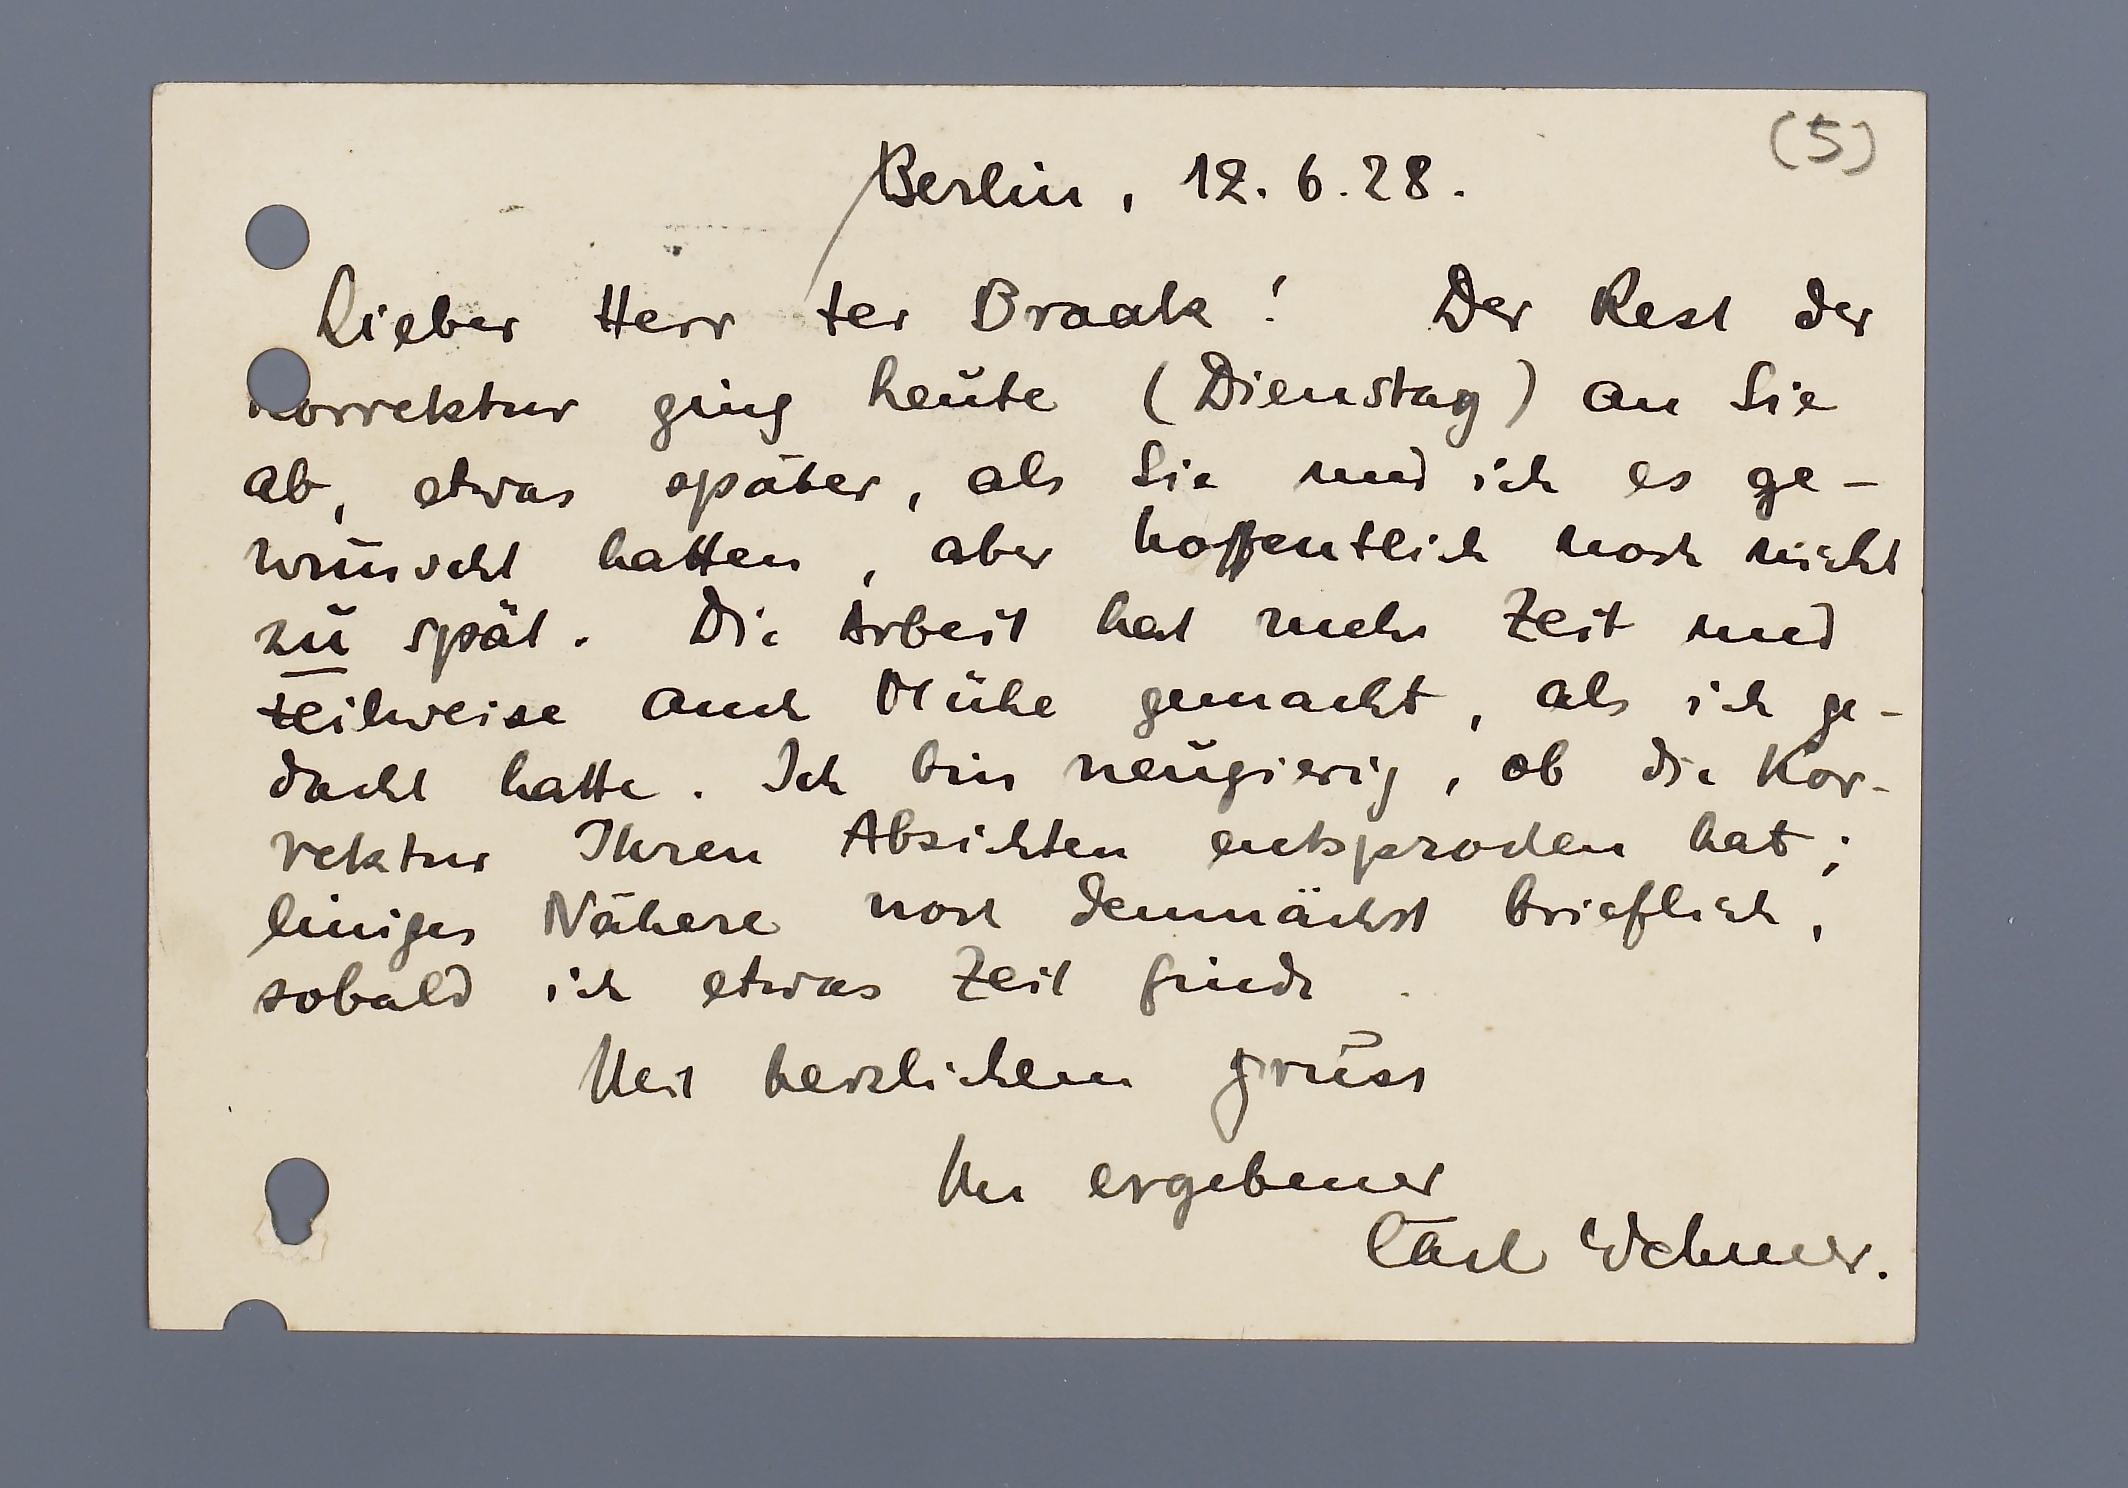 (5)
Berlin, 12. 6. 28.
Lieber Herr ter Braak! Der Rest der
Korrektur ging heute (Dienstag) an Sie
ab, etwas später, als Sie und ich es ge-
wünscht hatten, aber hoffentlich noch nicht
zu spät. Die Arbeit hat mehr Zeit und
teilweise auch Mühe gemacht, als ich ge-
dacht hatte. Ich bin neugierig, ob die Kor-
rektur Ihren Absichten entsprochen hat;
einiges Nähere noch demnächst brieflich,
sobald ich etwas Zeit finde.
Mit herzlichem Gruss
Ihr ergebener
Carl Wehmer.